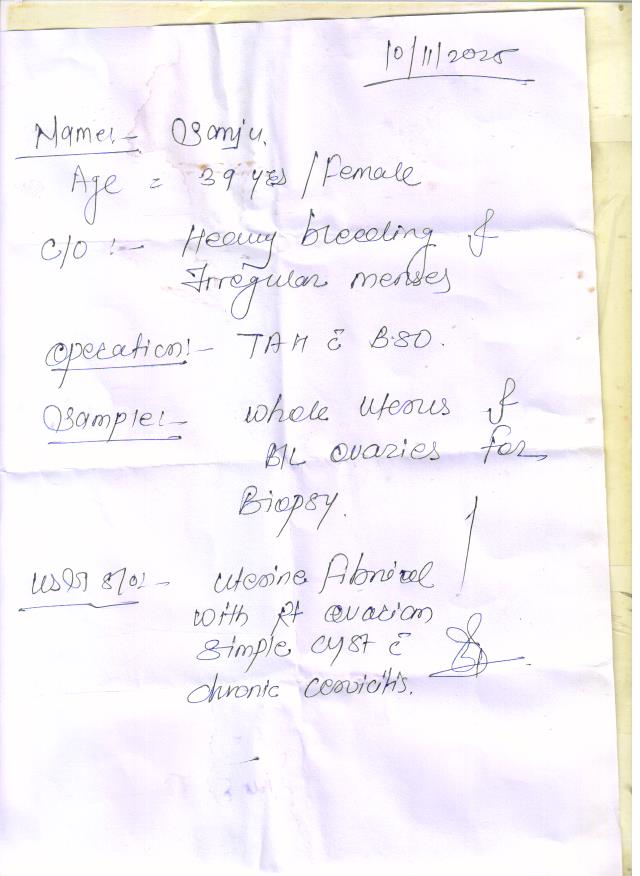 10/11/2025
Name:- Sanju.
Age = 39 yrs / Female
C/O :- Heavy bleeding &
Irregular menses
Operation:- TAH c̄ B.SO.
Sample:- Whole Uterus &
B/L ovaries for
Biopsy.
USG S/O:- Uterine fibroid
with Rt ovarian
simple cyst c̄
chronic cervicitis.